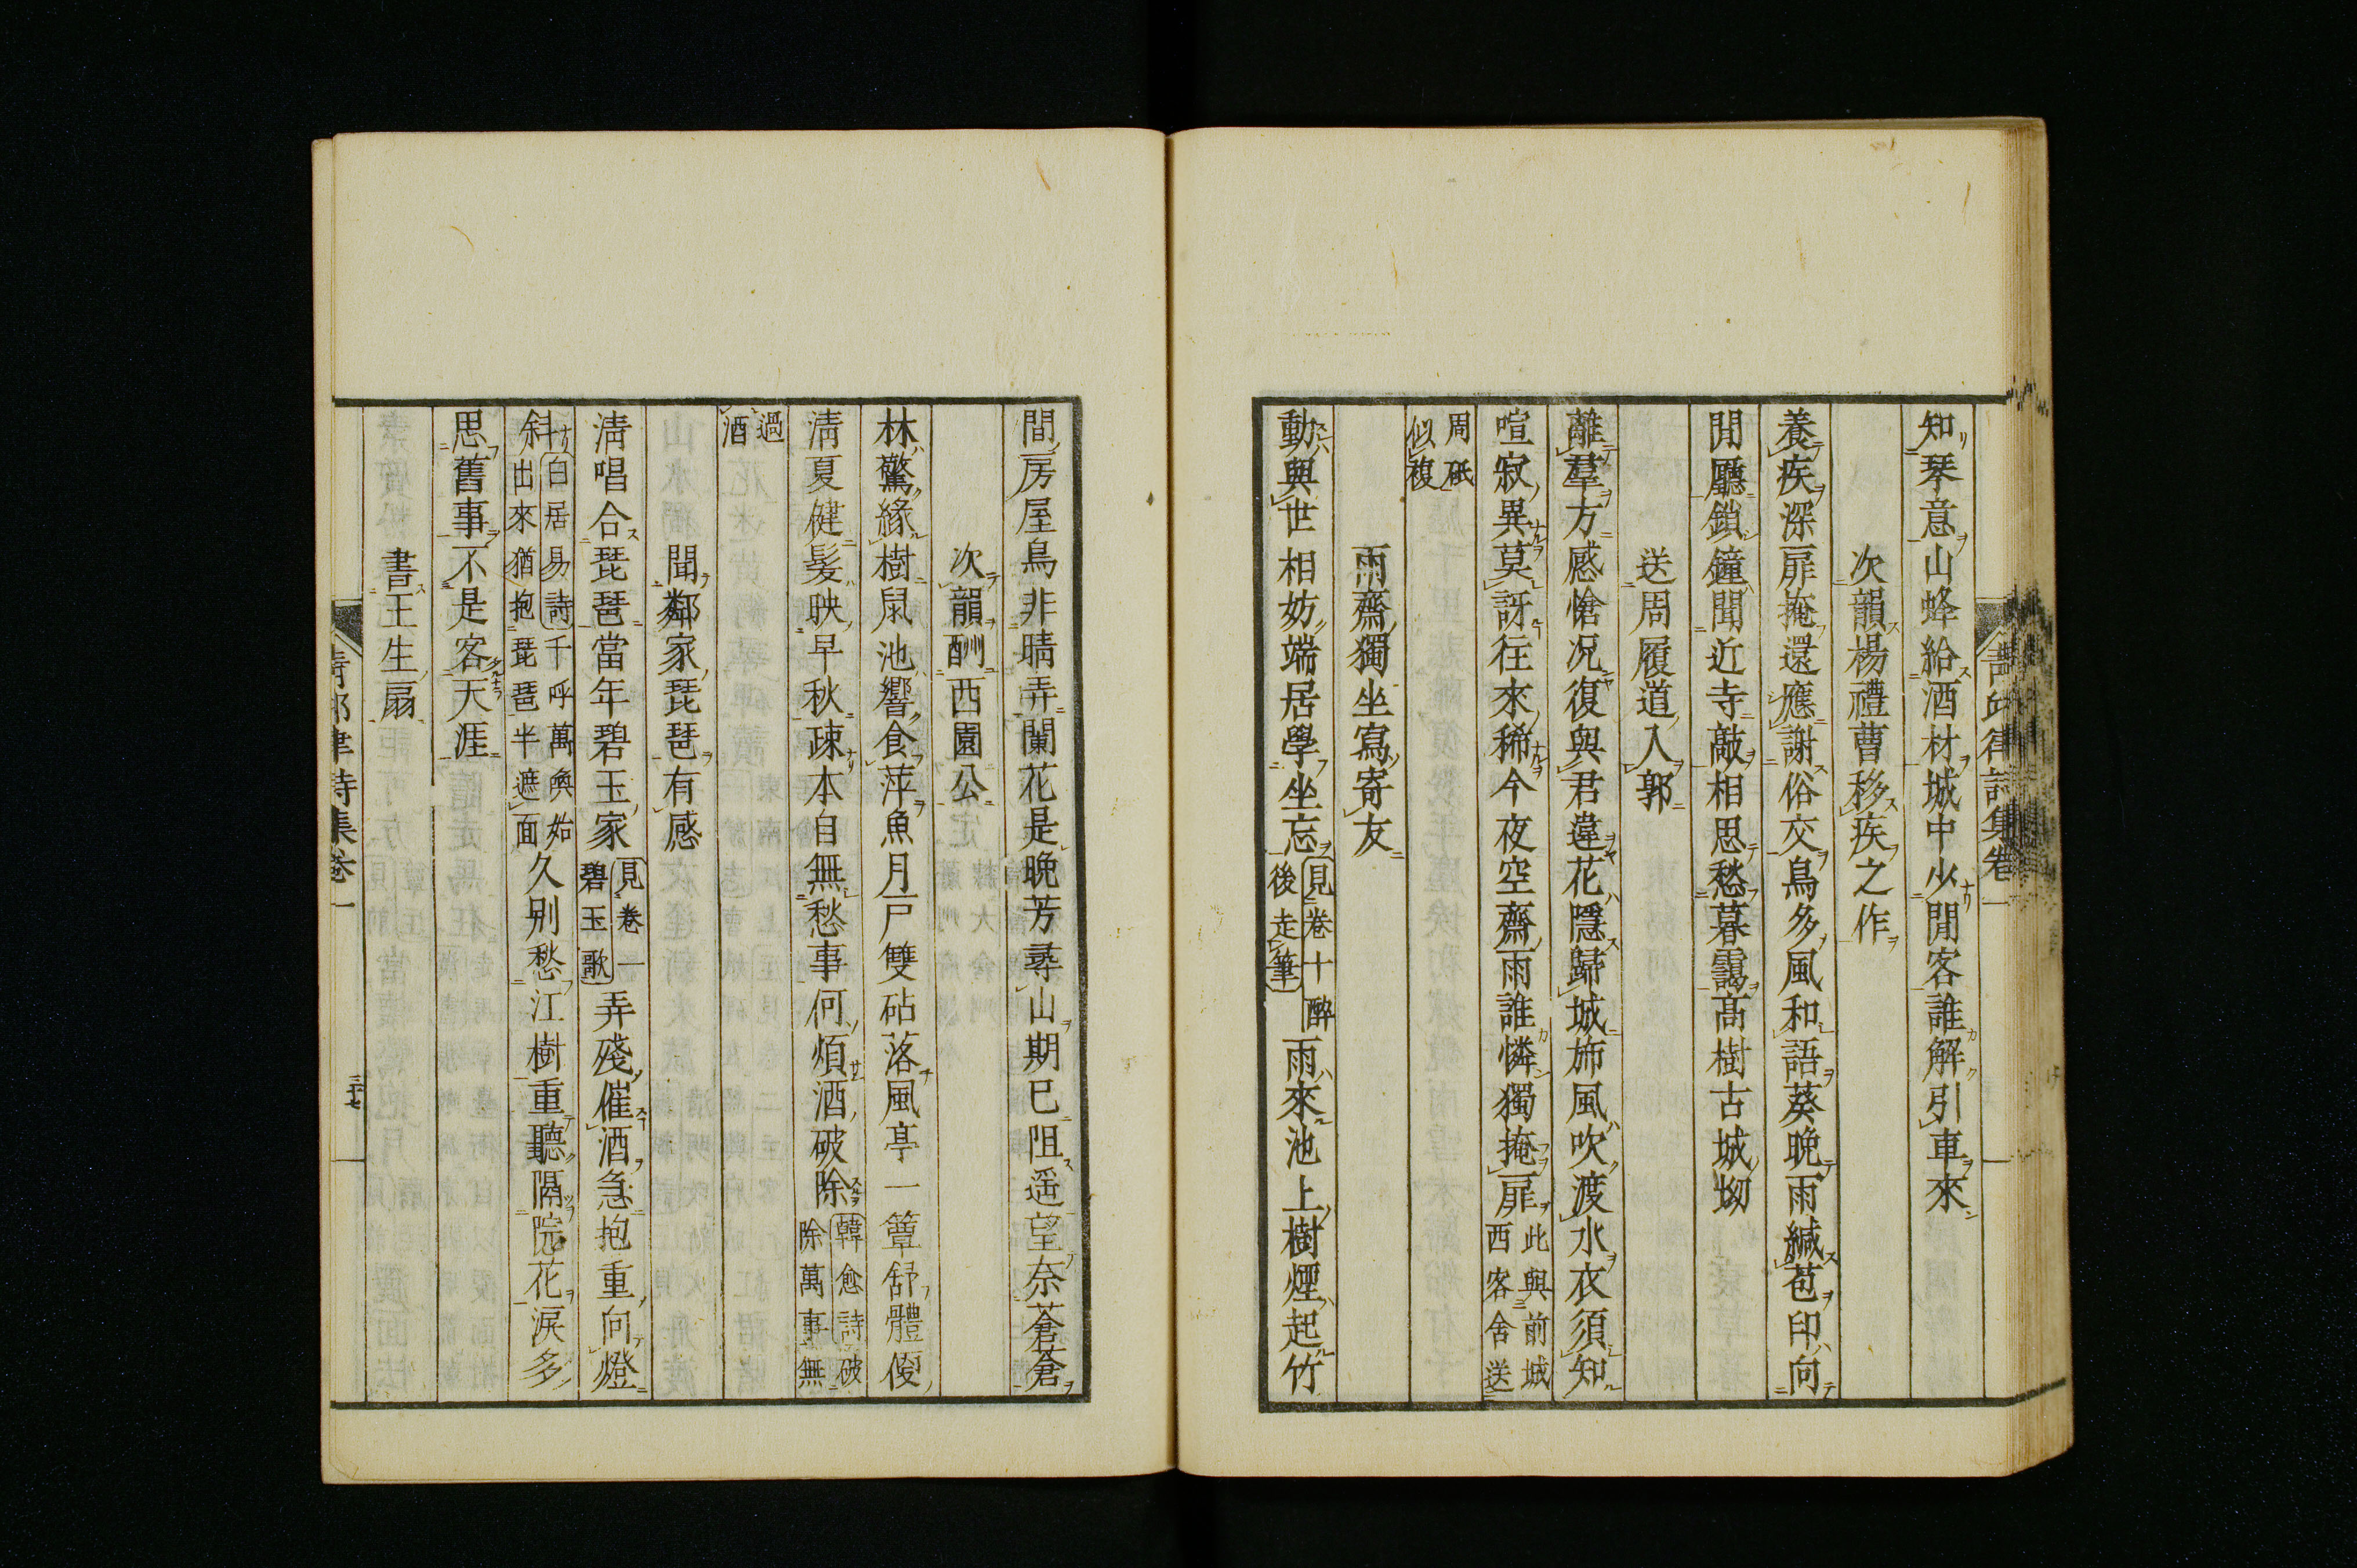 青邱律詩集卷一
知琴意山蜂給酒材城中少閒客誰解引車來
次韻楊禮曹移疾之作
養疾深扉掩還應謝俗交鳥多風和語葵晚雨緘苞印向
閒廳鎖鐘聞近寺敲相思愁暮靄髙樹古城坳
送周履道入郭
離羣方感愴况復與君違花隱歸城斾風吹渡水衣須知
喧寂異莫訝往來稀今夜空齋雨誰憐獨掩扉此與前城西客舍送
周砥似複
雨齋獨坐寫寄友
動與世相妨端居學坐忘見卷十醉後走筆雨來池上樹煙起竹
間房屋鳥非晴弄闌花是晚芳尋山期已阻遥望奈蒼蒼
次韻酬西園公
林驚緣樹鼠池響食萍魚月戸雙砧落風亭一簟舒體傻
淸夏健髮映早秋疎本自無愁事何煩酒破除韓愈詩破除萬事無
過酒
聞鄰家琵琶有感
淸唱合琵琶當年碧玉家見卷一碧玉歌弄殘催酒急抱重向燈
斜白居易詩千呼萬喚始出來猶抱琵琶半遮面久别愁江樹重聽隔院花淚多
思舊事不是客天涯
書王生扇
青邱律詩集卷一 三十七